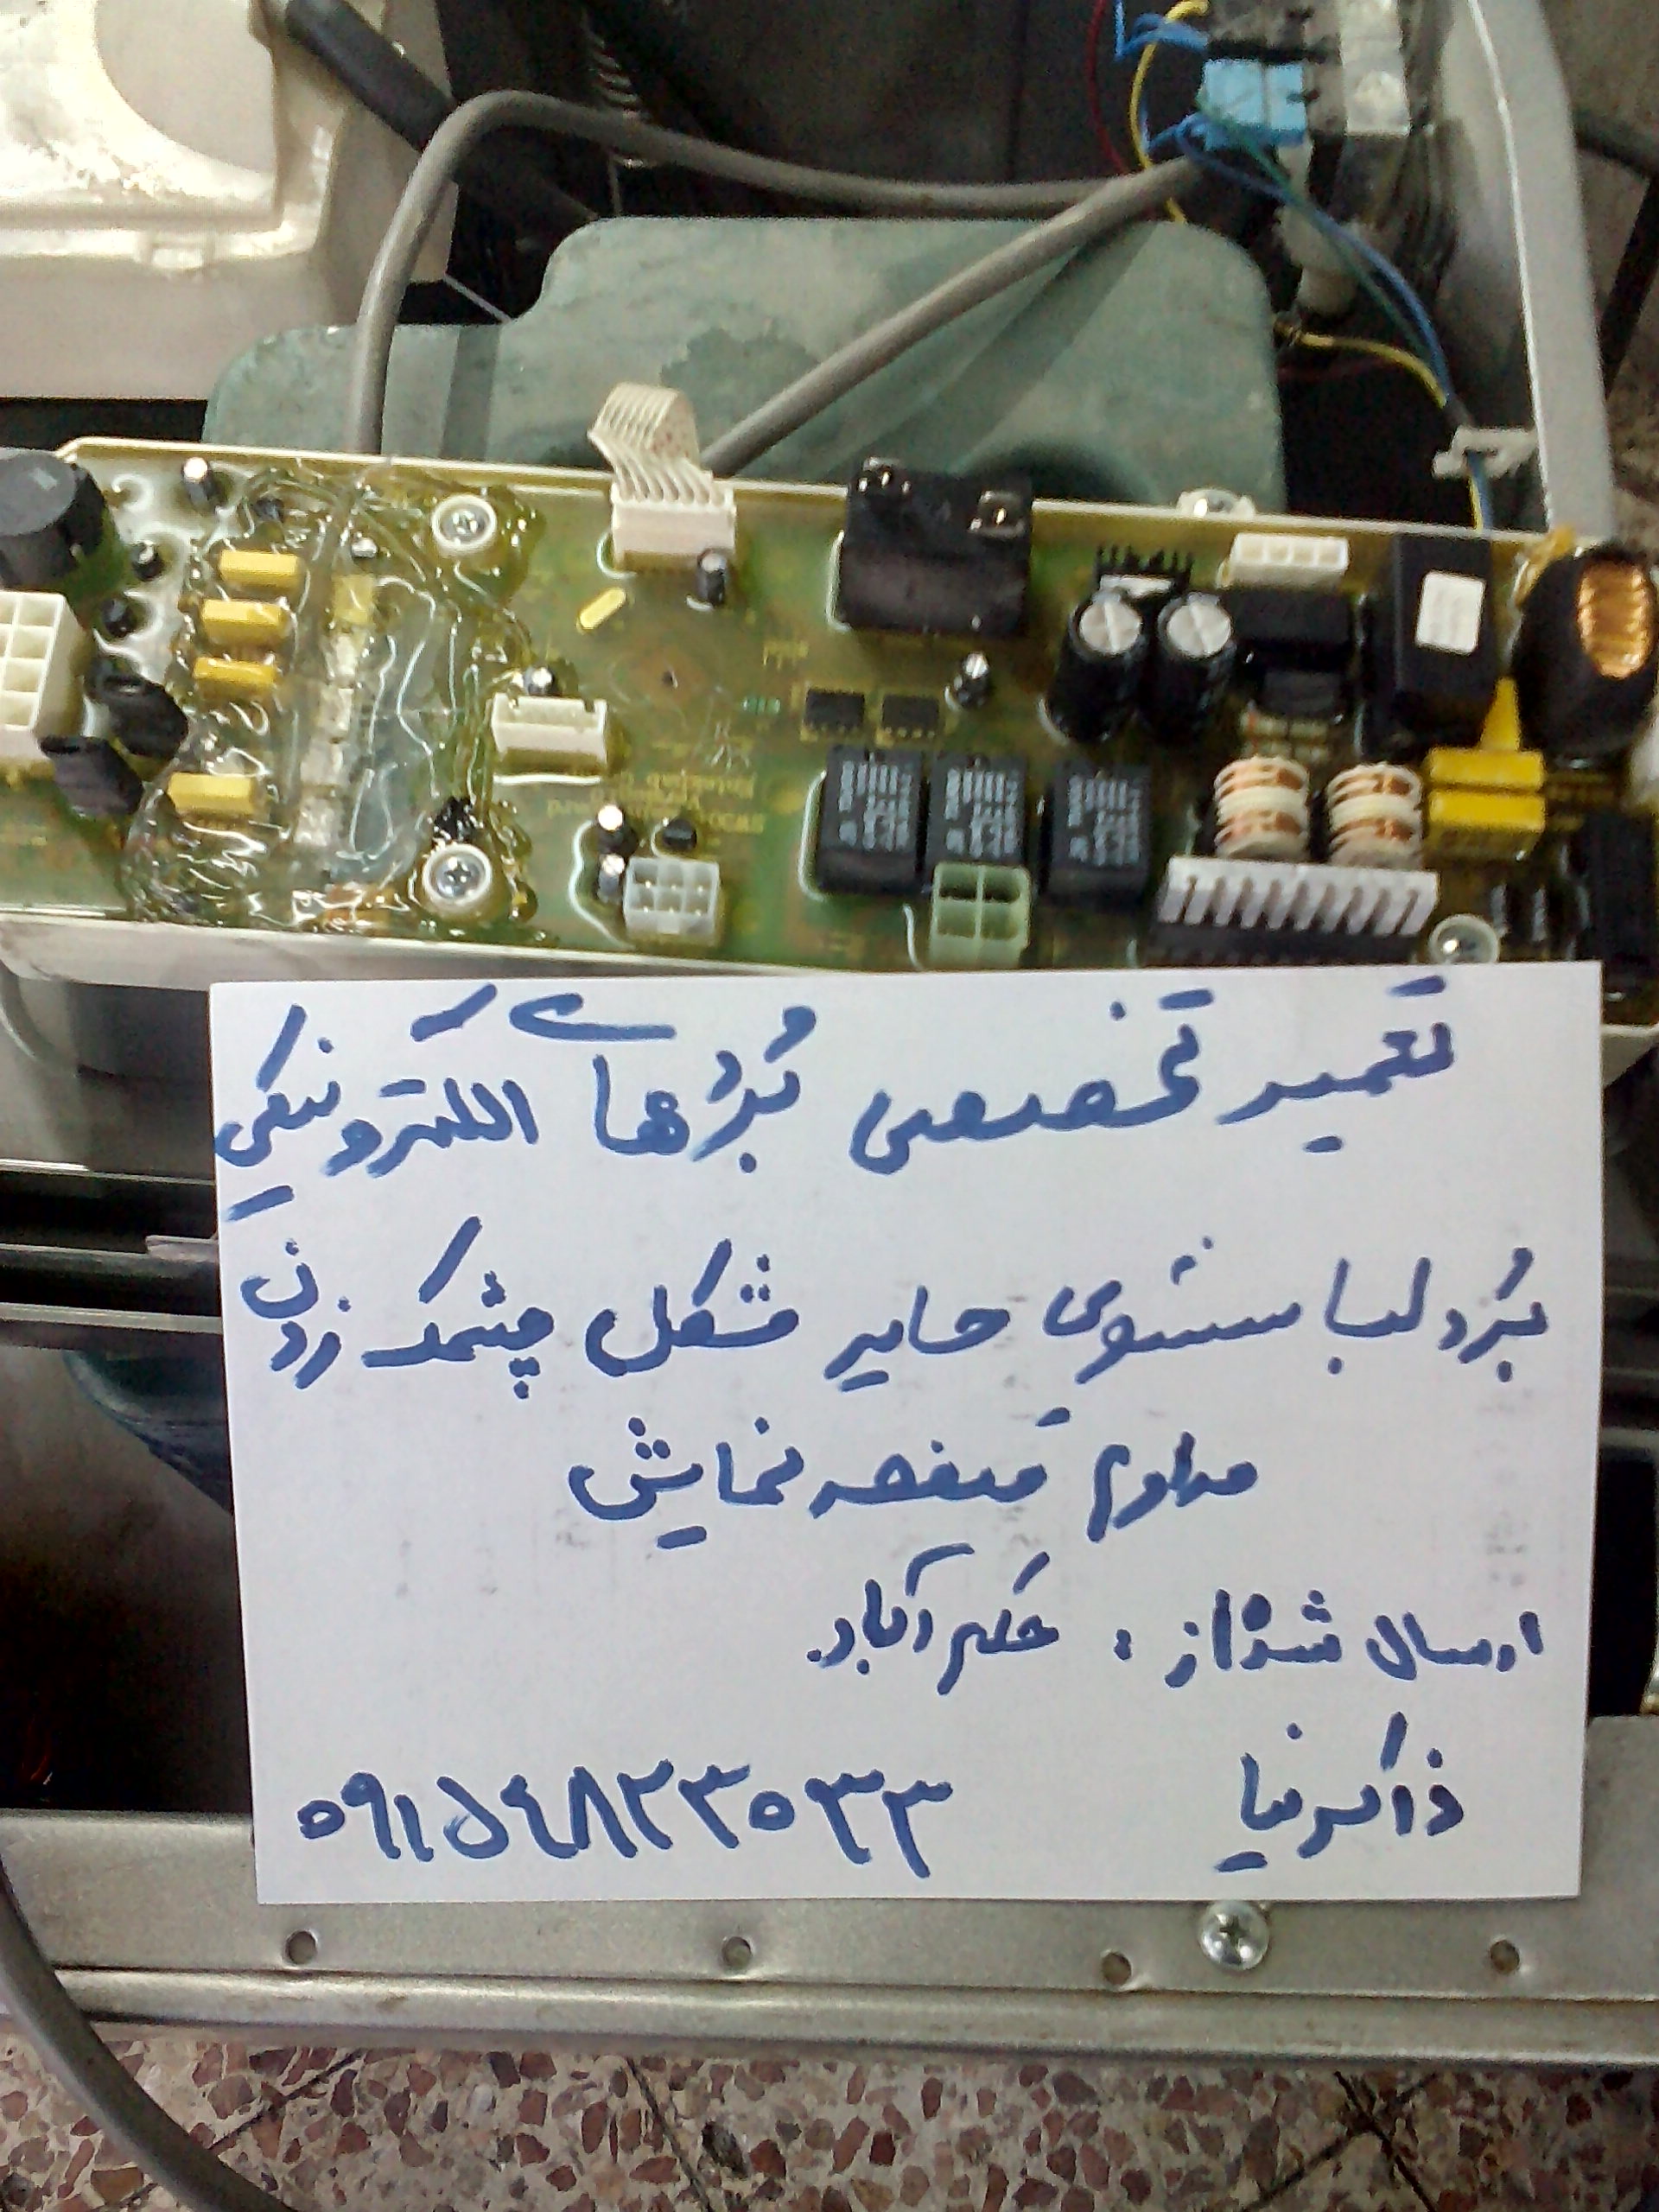 تعمیر تخصصی بُردهای الکترونیکی
بُرد لباسشوی حایر مشکل چشمک زدن
مداوم صفحه نمایش
ارسال شده از : حکم آباد
ذاکرنیا ۰۹۱۵۴۸۲۳۰۳۳